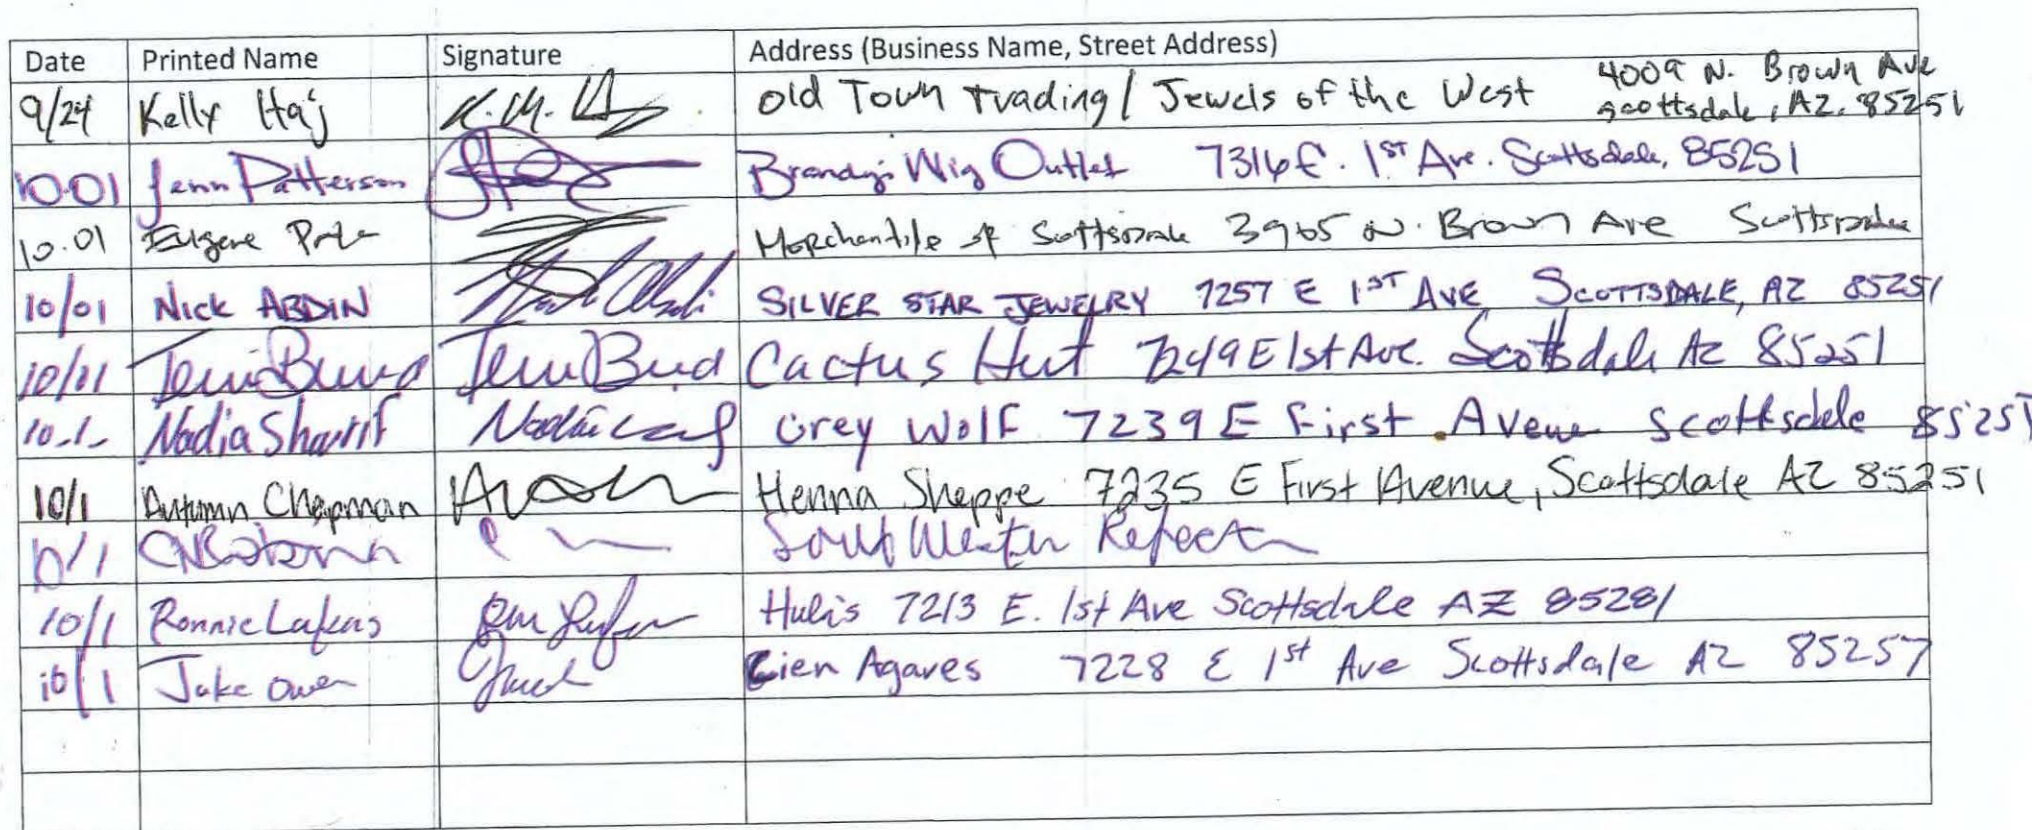 Date Printed Name Signature Address (Business Name, Street Address)
9/24 Kelly Haj K. M. Old Town Trading / Jewels of the West 4009 N. Brown Ave
Scottsdale, AZ. 85251
10.01 Jenn Patterson Brandy's Wig Outlet 7316 E. 1ST Ave. Scottsdale, 85251
10.01 Eugene Merchantile of Scottsdale 3965 N. Brown Ave Scottsdale
10/01 Nick ABDIN SILVER STAR JEWELRY 7257 E 1ST AVE SCOTTSDALE, AZ 85251
10/01 Cactus Hut 7249 E 1st Ave. Scottsdale AZ 85251
10.1. Nadia Sharif Grey Wolf 7239 E First Avenue Scottsdele 85251
10/1 Autumn Chapman Henna Sheppe 7235 E First Avenue, Scottsdale AZ 85251
10/1
10/1 Ronnie Hulis 7213 E. 1st Ave Scottsdale AZ 85281
10/1 Jake Owen Cien Agaves 7228 E 1st Ave Scottsdale AZ 85257